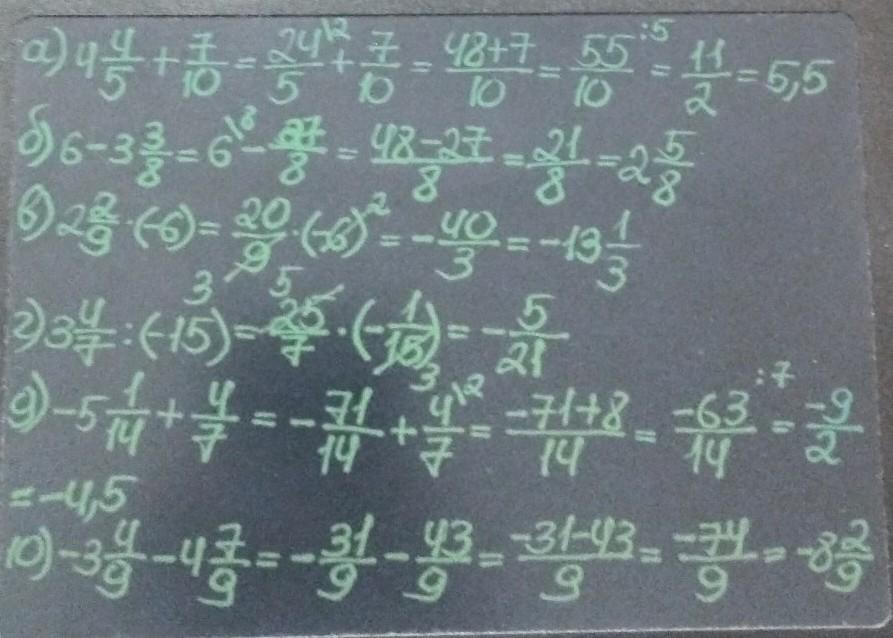 а) 4 4/5 + 7/10 = 24\2/5 + 7/10 = 48+7/10 = 55:5/10 = 11/2 = 5,5
б) 6 - 3 3/8 = 6\8 - 27/8 = 48-27/8 = 21/8 = 2 5/8
в) 2 2/9 · (-6) = 20/9 3 · (-6)2 = - 40/3 = -13 1/3
г) 3 4/7 : (-15) = 25 5/7 · (- 1/15 3) = - 5/21
д) -5 1/14 + 4/7 = - 71/14 + 4\2/7 = -71+8/14 = -63:7/14 = -9/2
= -4,5
10) -3 4/9 - 4 7/9 = - 31/9 - 43/9 = -31-43/9 = -74/9 = -8 2/9